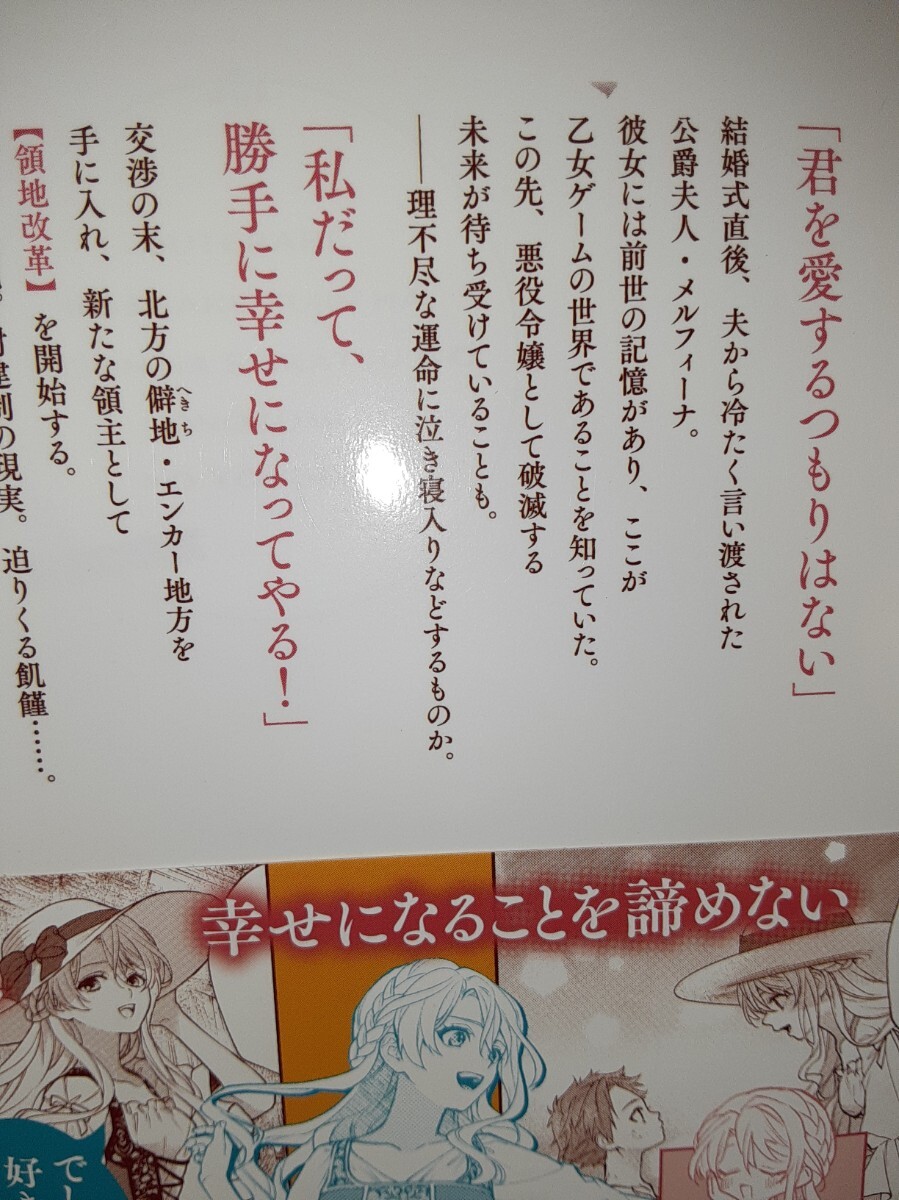 「君を愛するつもりはない」
結婚式直後、夫から冷たく言い渡された
公爵夫人・メルフィーナ。
彼女には前世の記憶があり、ここが
乙女ゲームの世界であることを知っていた。
この先、悪役令嬢として破滅する
未来が待ち受けていることも。
――理不尽な運命に泣き寝入りなどするものか。
「私だって、
勝手に幸せになってやる!」
交渉の末、北方の僻地・エンカー地方を
へきち
手に入れ、新たな領主として
【領地改革】を開始する。
の現実。迫りくる飢饉……。
幸せになることを諦めない